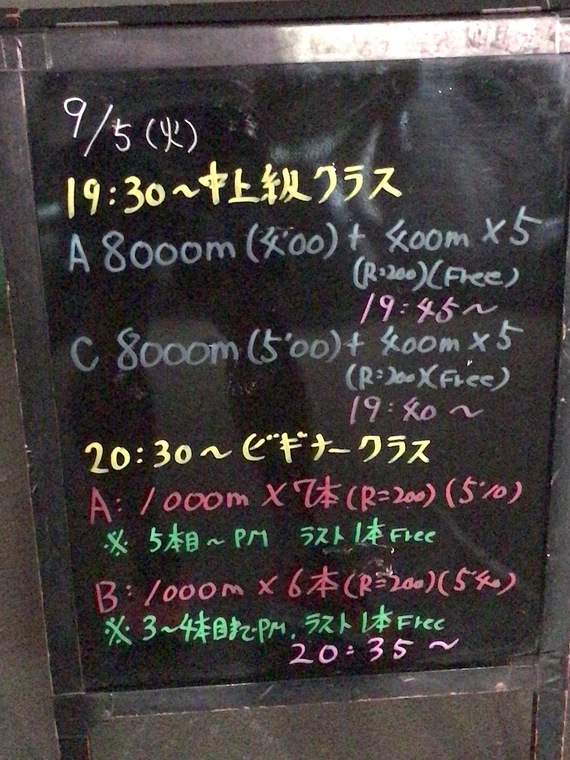 9/5(火)
19:30〜中上級クラス
A 8000m(4'00)+ 400m×5
(R=200)(Free)
19:45〜
C 8000m(5'00)+ 400m×5
(R=200)(Free)
19:40〜
20:30〜ビギナークラス
A: 1000m×7本(R=200)(5'10)
※ 5本目〜PM ラスト1本Free
B: 1000m×6本(R=200)(5'40)
※ 3〜4本目までPM、ラスト1本Free
20:35〜